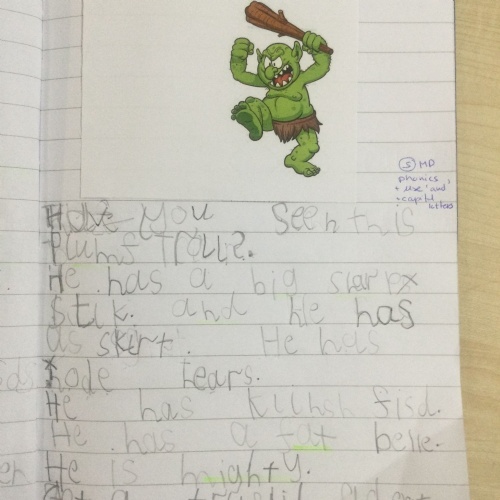 Have you seen this
Plumf Troll?.
He has a big
stik. and He has
as skert. He has
tears.
He has fisd.
He has a fat belle.
He is mighty.
S MD
phonics
+ use 'and'
+ capital
letters